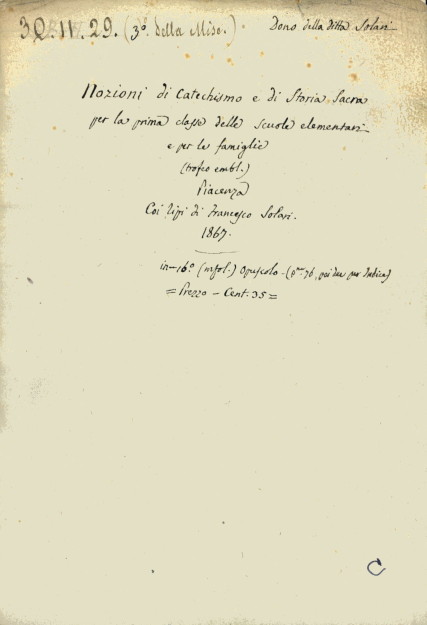 3Q.11.29. (3º della Misc.) Dono della Ditta Solari
Nozioni di Catechismo e di Storia Sacra
per la prima classe delle scuole elementari
e per le famiglie
(trofeo embl.)
Piacenza
Coi Tipi di Francesco Solari.
1867.
in-16º Opuscolo - (pne 76, poi due per Indice)
= Prezzo - Cent: 35 =
C